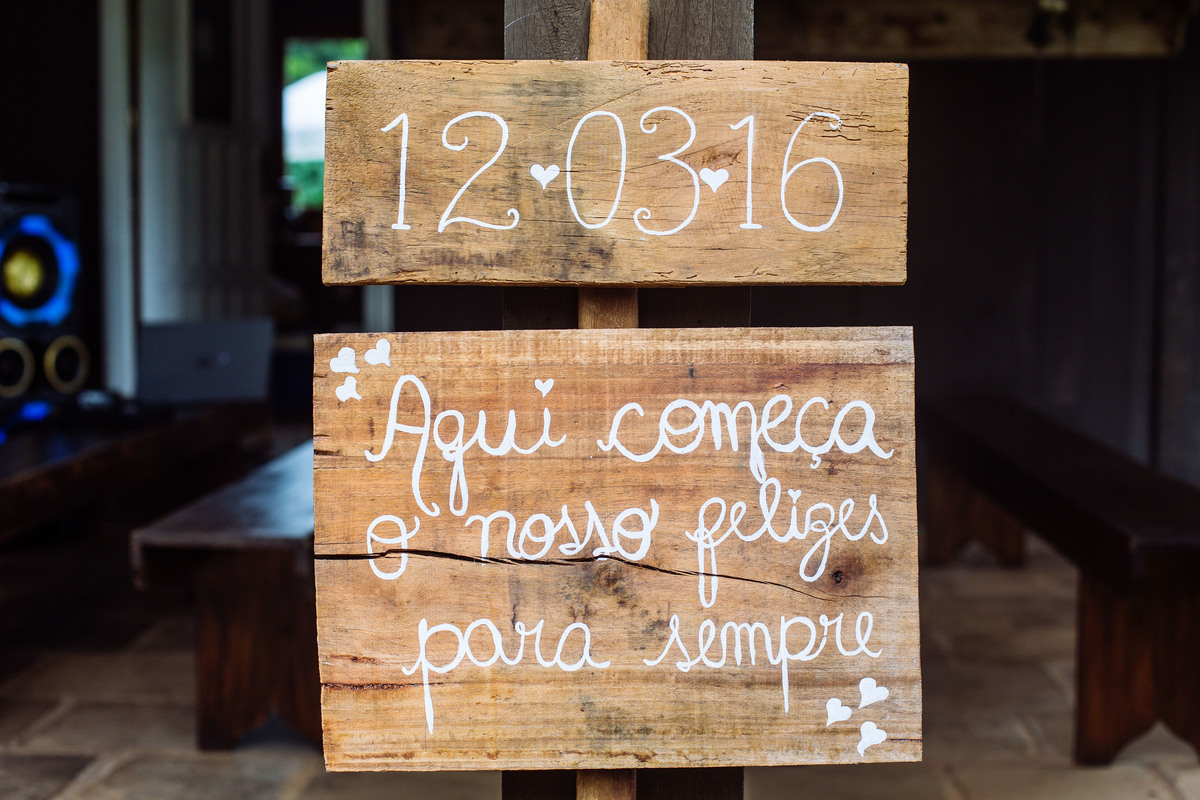 12♥03♥16
Aqui começa
o nosso felizes
para sempre